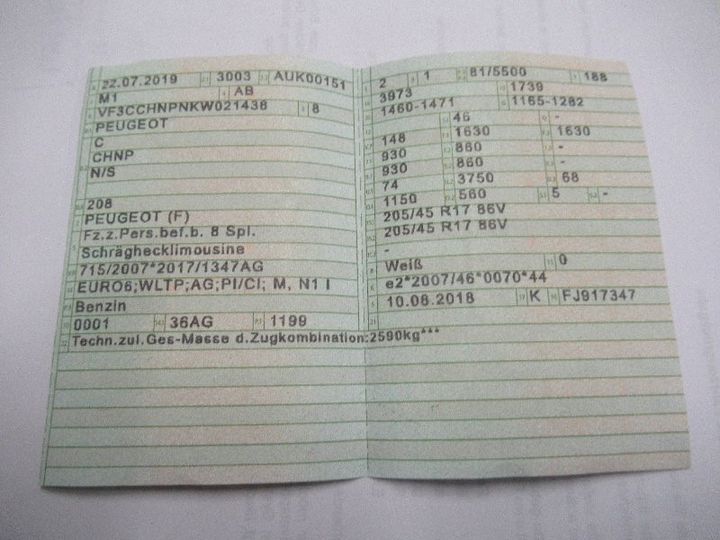 22.07.2019 3003 AUK00151
M1 AB
VF3CCHNPNKW021438 8
PEUGEOT
C
CHNP
N/S
208
PEUGEOT (F)
Fz.z.Pers.bef.b. 8 Spl.
Schräghecklimousine
715/2007*2017/1347AG
EURO6;WLTP;AG;PI/CI; M, N1 I
Benzin
0001 36AG 1199
Techn.zul.Ges-Masse d.Zugkombination:2590kg***
2 1 81/5500 188
3973 1739
1460-1471 1165-1282
46 -
148 1630 1630
930 860 -
930 860 -
74 3750 68
1150 560 5 -
205/45 R17 86V
205/45 R17 86V
-
Weiß 0
e2*2007/46*0070*44
10.08.2018 K FJ917347